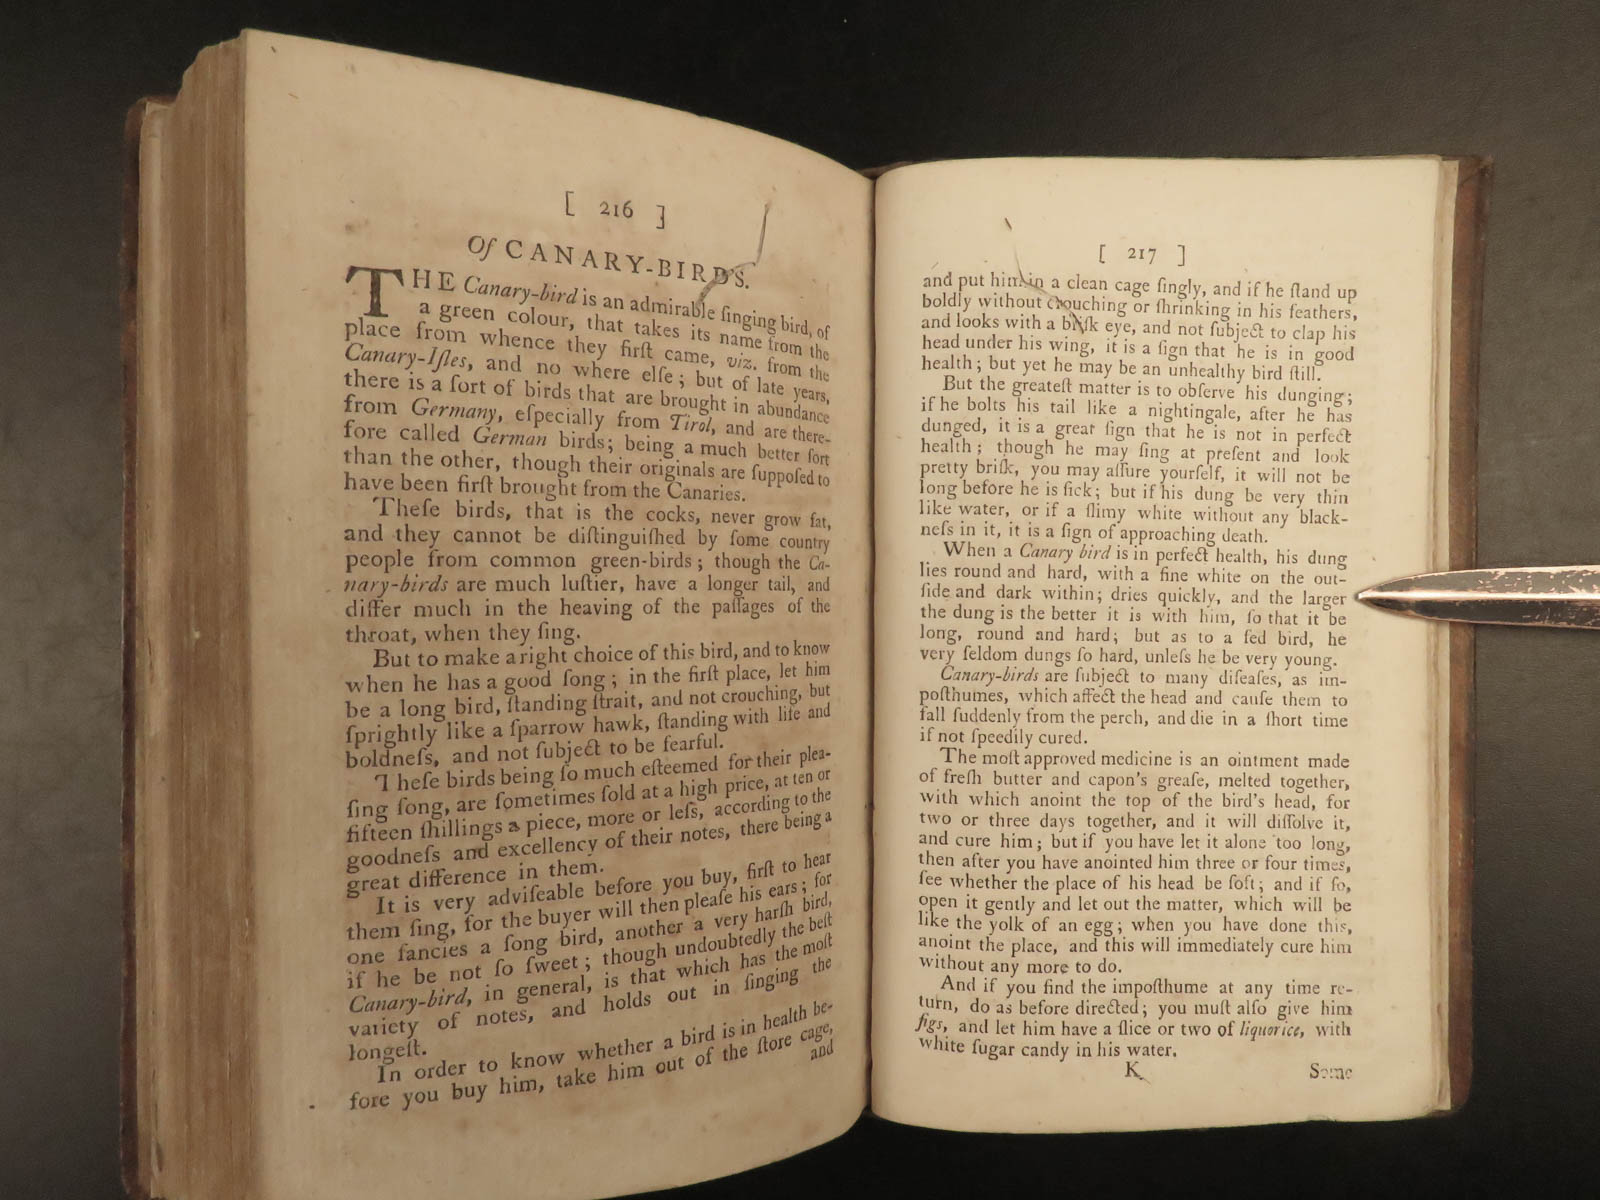 [ 216 ]
Of CANARY-BIRDS.
THE Canary-bird is an admirable ſinging bird, of
a green colour, that takes its name from the
place from whence they firſt came, viz. from the
Canary-Iſles, and no where elſe; but of late years,
there is a ſort of birds that are brought in abundance
from Germany, eſpecially from Tirol, and are there-
fore called German birds; being a much better ſort
than the other, though their originals are ſuppoſed to
have been firſt brought from the Canaries.
Theſe birds, that is the cocks, never grow fat,
and they cannot be diſtinguiſhed by ſome country
people from common green-birds; though the Ca-
nary-birds are much luſtier, have a longer tail, and
differ much in the heaving of the paſſages of the
throat, when they ſing.
But to make a right choice of this bird, and to know
when he has a good ſong; in the firſt place, let him
be a long bird, ſtanding ſtrait, and not crouching, but
ſprightly like a ſparrow hawk, ſtanding with life and
boldneſs, and not ſubject to be fearful.
Theſe birds being ſo much eſteemed for their plea-
ſing ſong, are ſometimes ſold at a high price, at ten or
fifteen ſhillings a piece, more or leſs, according to the
goodneſs and excellency of their notes, there being a
great difference in them.
It is very adviſeable before you buy, firſt to hear
them ſing, for the buyer will then pleaſe his ears; for
one fancies a ſong bird, another a very harſh bird,
if he be not ſo ſweet; though undoubtedly the beſt
Canary-bird, in general, is that which has the moſt
variety of notes, and holds out in ſinging the
longeſt.
In order to know whether a bird is in health be-
fore you buy him, take him out of the ſtore cage,
and
[ 217 ]
and put him in a clean cage ſingly, and if he ſtand up
boldly without crouching or ſhrinking in his feathers,
and looks with a briſk eye, and not ſubject to clap his
head under his wing, it is a ſign that he is in good
health; but yet he may be an unhealthy bird ſtill.
But the greateſt matter is to obſerve his dunging;
if he bolts his tail like a nightingale, after he has
dunged, it is a great ſign that he is not in perfect
health; though he may ſing at preſent and look
pretty briſk, you may aſſure yourſelf, it will not be
long before he is ſick; but if his dung be very thin
like water, or if a ſlimy white without any black-
neſs in it, it is a ſign of approaching death.
When a Canary bird is in perfect health, his dung
lies round and hard, with a fine white on the out-
ſide and dark within; dries quickly, and the larger
the dung is the better it is with him, ſo that it be
long, round and hard; but as to a ſed bird, he
very ſeldom dungs ſo hard, unleſs he be very young.
Canary-birds are ſubject to many diſeaſes, as im-
poſthumes, which affect the head and cauſe them to
fall ſuddenly from the perch, and die in a ſhort time
if not ſpeedily cured.
The moſt approved medicine is an ointment made
of freſh butter and capon's greaſe, melted together,
with which anoint the top of the bird's head, for
two or three days together, and it will diſſolve it,
and cure him; but if you have let it alone too long,
then after you have anointed him three or four times,
ſee whether the place of his head be ſoft; and if ſo,
open it gently and let out the matter, which will be
like the yolk of an egg; when you have done this,
anoint the place, and this will immediately cure him
without any more to do.
And if you find the impoſthume at any time re-
turn, do as before directed; you muſt alſo give him
figs, and let him have a ſlice or two of liquorice, with
white ſugar candy in his water.
K
Some